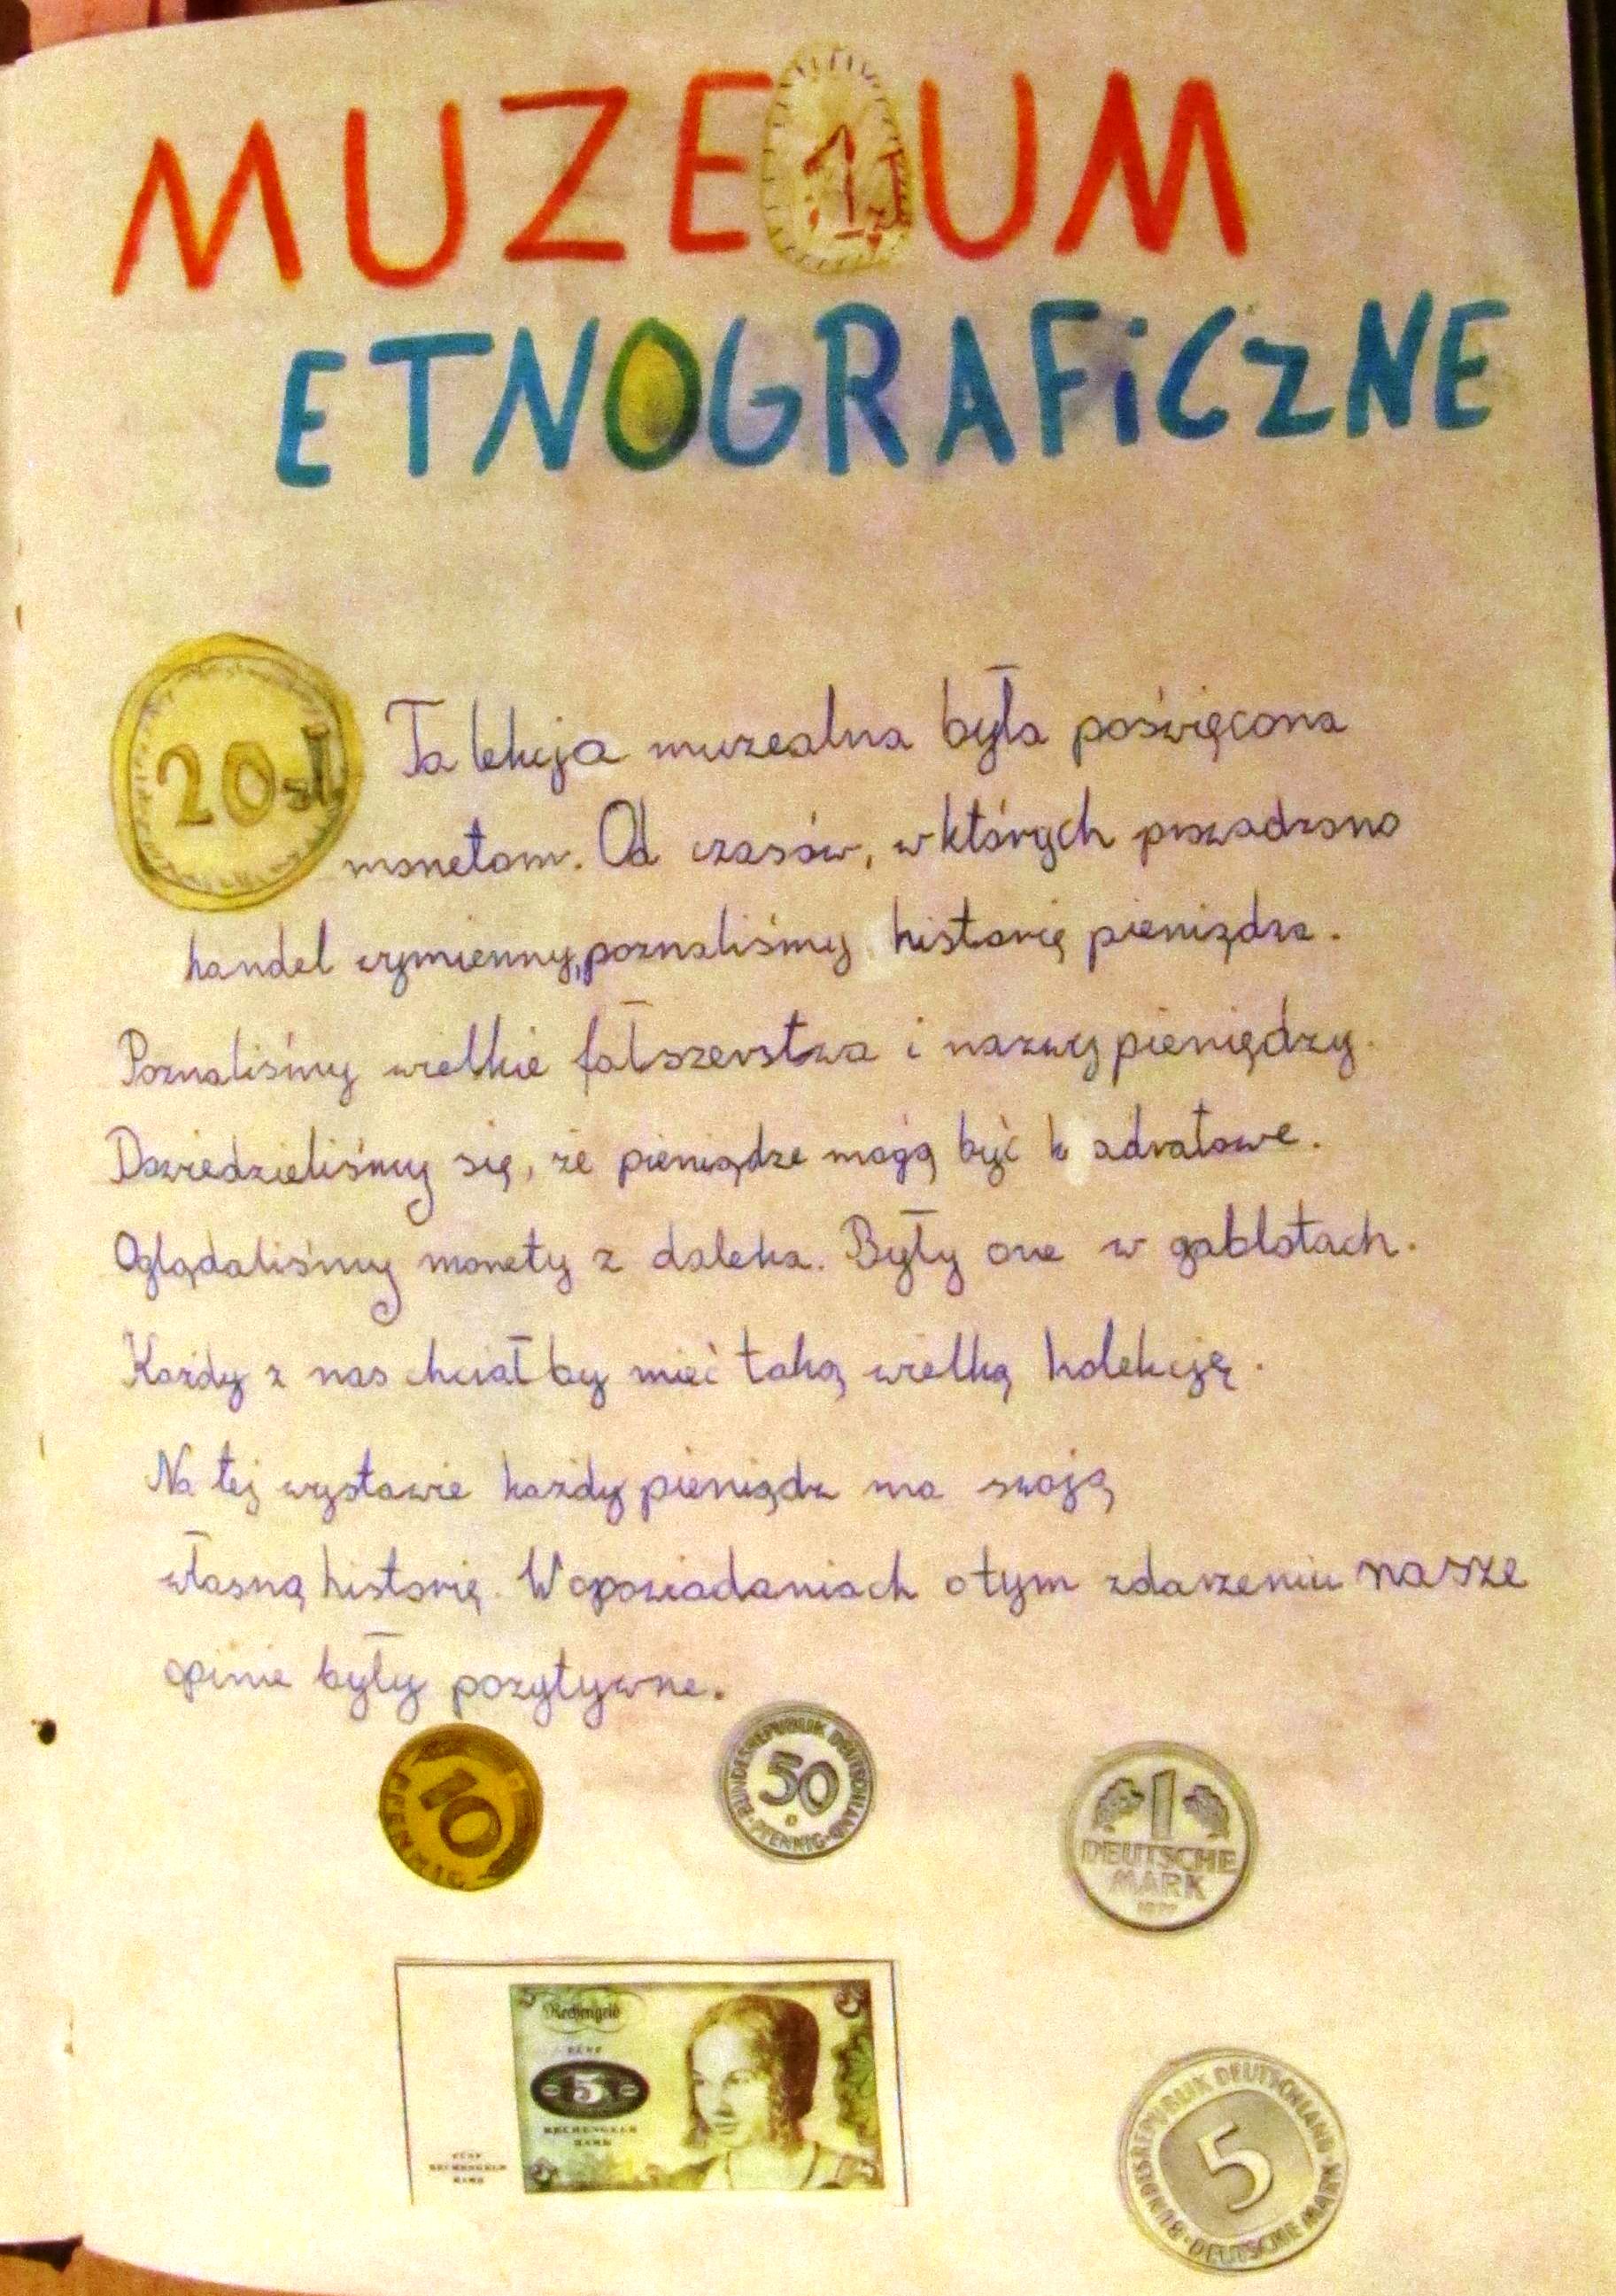 MUZEUM
1 zł
ETNOGRAFiCZNE
20 zł
Ta lekcja muzealna była poświęcona
monetom. Od czasów, w których prowadzono
handel wymienny, poznaliśmy historię pieniądza.
Poznaliśmy wielkie fałszerstwa i nazwy pieniędzy.
Dowiedzieliśmy się, że pieniądze mogą być k adratowe.
Oglądaliśmy monety z daleka. Były one w gablotach.
Każdy z nas chciał by mieć taką wielką kolekcję.
Na tej wystawie każdy pieniądz ma swoją
własną historię. W opowiadaniach o tym zdarzeniu nasze
opinie były pozytywne.
10
PFENNIG
BUNDESREPUBLIK DEUTSCHLAND
50
PFENNIG
1
DEUTSCHE
MARK
5 5
Rechengeld
FÜNF
5
RECHENGELD
MARK
FÜNF
RECHENGELD
MARK
BUNDESREPUBLIK DEUTSCHLAND
5
DEUTSCHE MARK